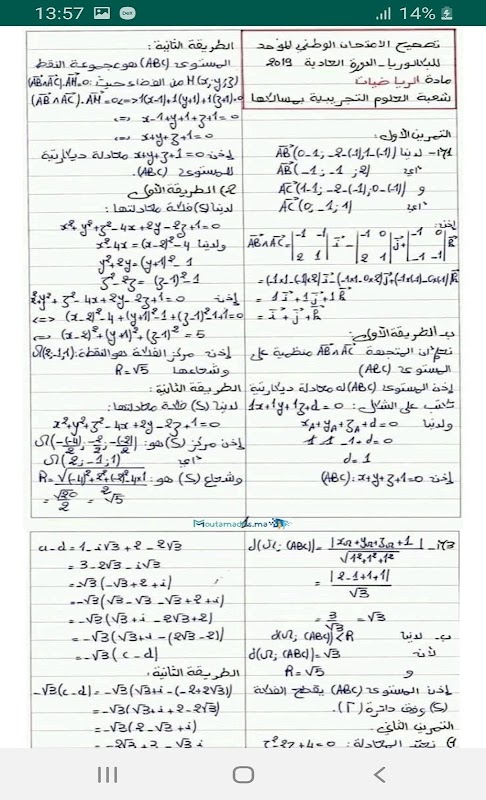 13:57
14%
تصحيح الامتحان الوطني الموحد
للبكالوريا - الدورة العادية 2019
مادة الرياضيات
شعبة العلوم التجريبية بمسالكها
التمرين الأول:
AB(0-1; -2-(-1);1-(-1)) لدينا
AB(-1; -1; 2) أي
و AC(1-1; -2-(-1);0-(-1))
AC(0; -1; 1) أي
إذن:
= 1i + 1j + 1k
= i + j + k
ب- الطريقة الأولى:
نعلم أن المتجهة AB∧AC منظمية على
المستوى (ABC)
إذن المستوى (ABC) له معادلة ديكارتية
تكتب على الشكل: 1x+1y+1z+d=0
ولدينا xA+yA+zA+d=0
1-1-1+d=0
d=1
إذن (ABC): x+y+z+1=0
الطريقة الثانية:
المستوى (ABC) هو مجموعة النقط
M(x,y,z) من الفضاء حيث: (AB∧AC).AM=0
(AB∧AC).AM=0 ⇔ 1(x-1)+1(y+1)+1(z+1)=0
⇔ x-1+y+1+z+1=0
⇔ x+y+z+1=0
إذن x+y+z+1=0 معادلة ديكارتية
للمستوى (ABC).
2- الطريقة الأولى
لدينا (S) فلكة معادلتها:
x²+y²+z²-4x+2y-2z+1=0
ولدينا x²-4x=(x-2)²-4
y²+2y=(y+1)²-1
z²-2z=(z-1)²-1
إذن x²+y²+z²-4x+2y-2z+1=0
⇔ (x-2)²-4+(y+1)²-1+(z-1)²-1+1=0
⇔ (x-2)²+(y+1)²+(z-1)²=5
إذن مركز الفلكة هو النقطة Ω(2,-1,1)
وشعاعها R=√5
الطريقة الثانية:
لدينا (S) فلكة معادلتها:
x²+y²+z²-4x+2y-2z+1=0
إذن مركز (S) هو: Ω(-(-4)/2; -2/2; -(-2)/2)
أي Ω(2;-1;1)
وشعاع (S) هو: R=√((-4)²+2²+(-2)²-4x1)/2
= √20/2 = √5
Moutamadris.ma
d(Ω; (ABC)) = |xΩ+yΩ+zΩ+1| / √(1²+1²+1²)
= |2-1+1+1| / √3
= 3/√3 = √3
ب- لدينا d(Ω; (ABC)) < R
لأن d(Ω; (ABC)) = √3
و R=√5
إذن المستوى (ABC) يقطع الفلكة
(S) وفق دائرة (Γ).
التمرين الثاني.
نعتبر المعادلة: z²-2z+4=0
a-d=1-i√3+2-2√3
=3-2√3-i√3
=√3(-√3+2+i)
=-√3(√3+i-2√3+2)
=-√3(√3+i-(2√3-2))
=-√3(c-d)
الطريقة الثانية:
-√3(c-d)=-√3(√3+i-(-2+2√3))
=-√3(√3+i+2-2√3)
=-√3(2-√3+i)
=-2√3+3-√3i